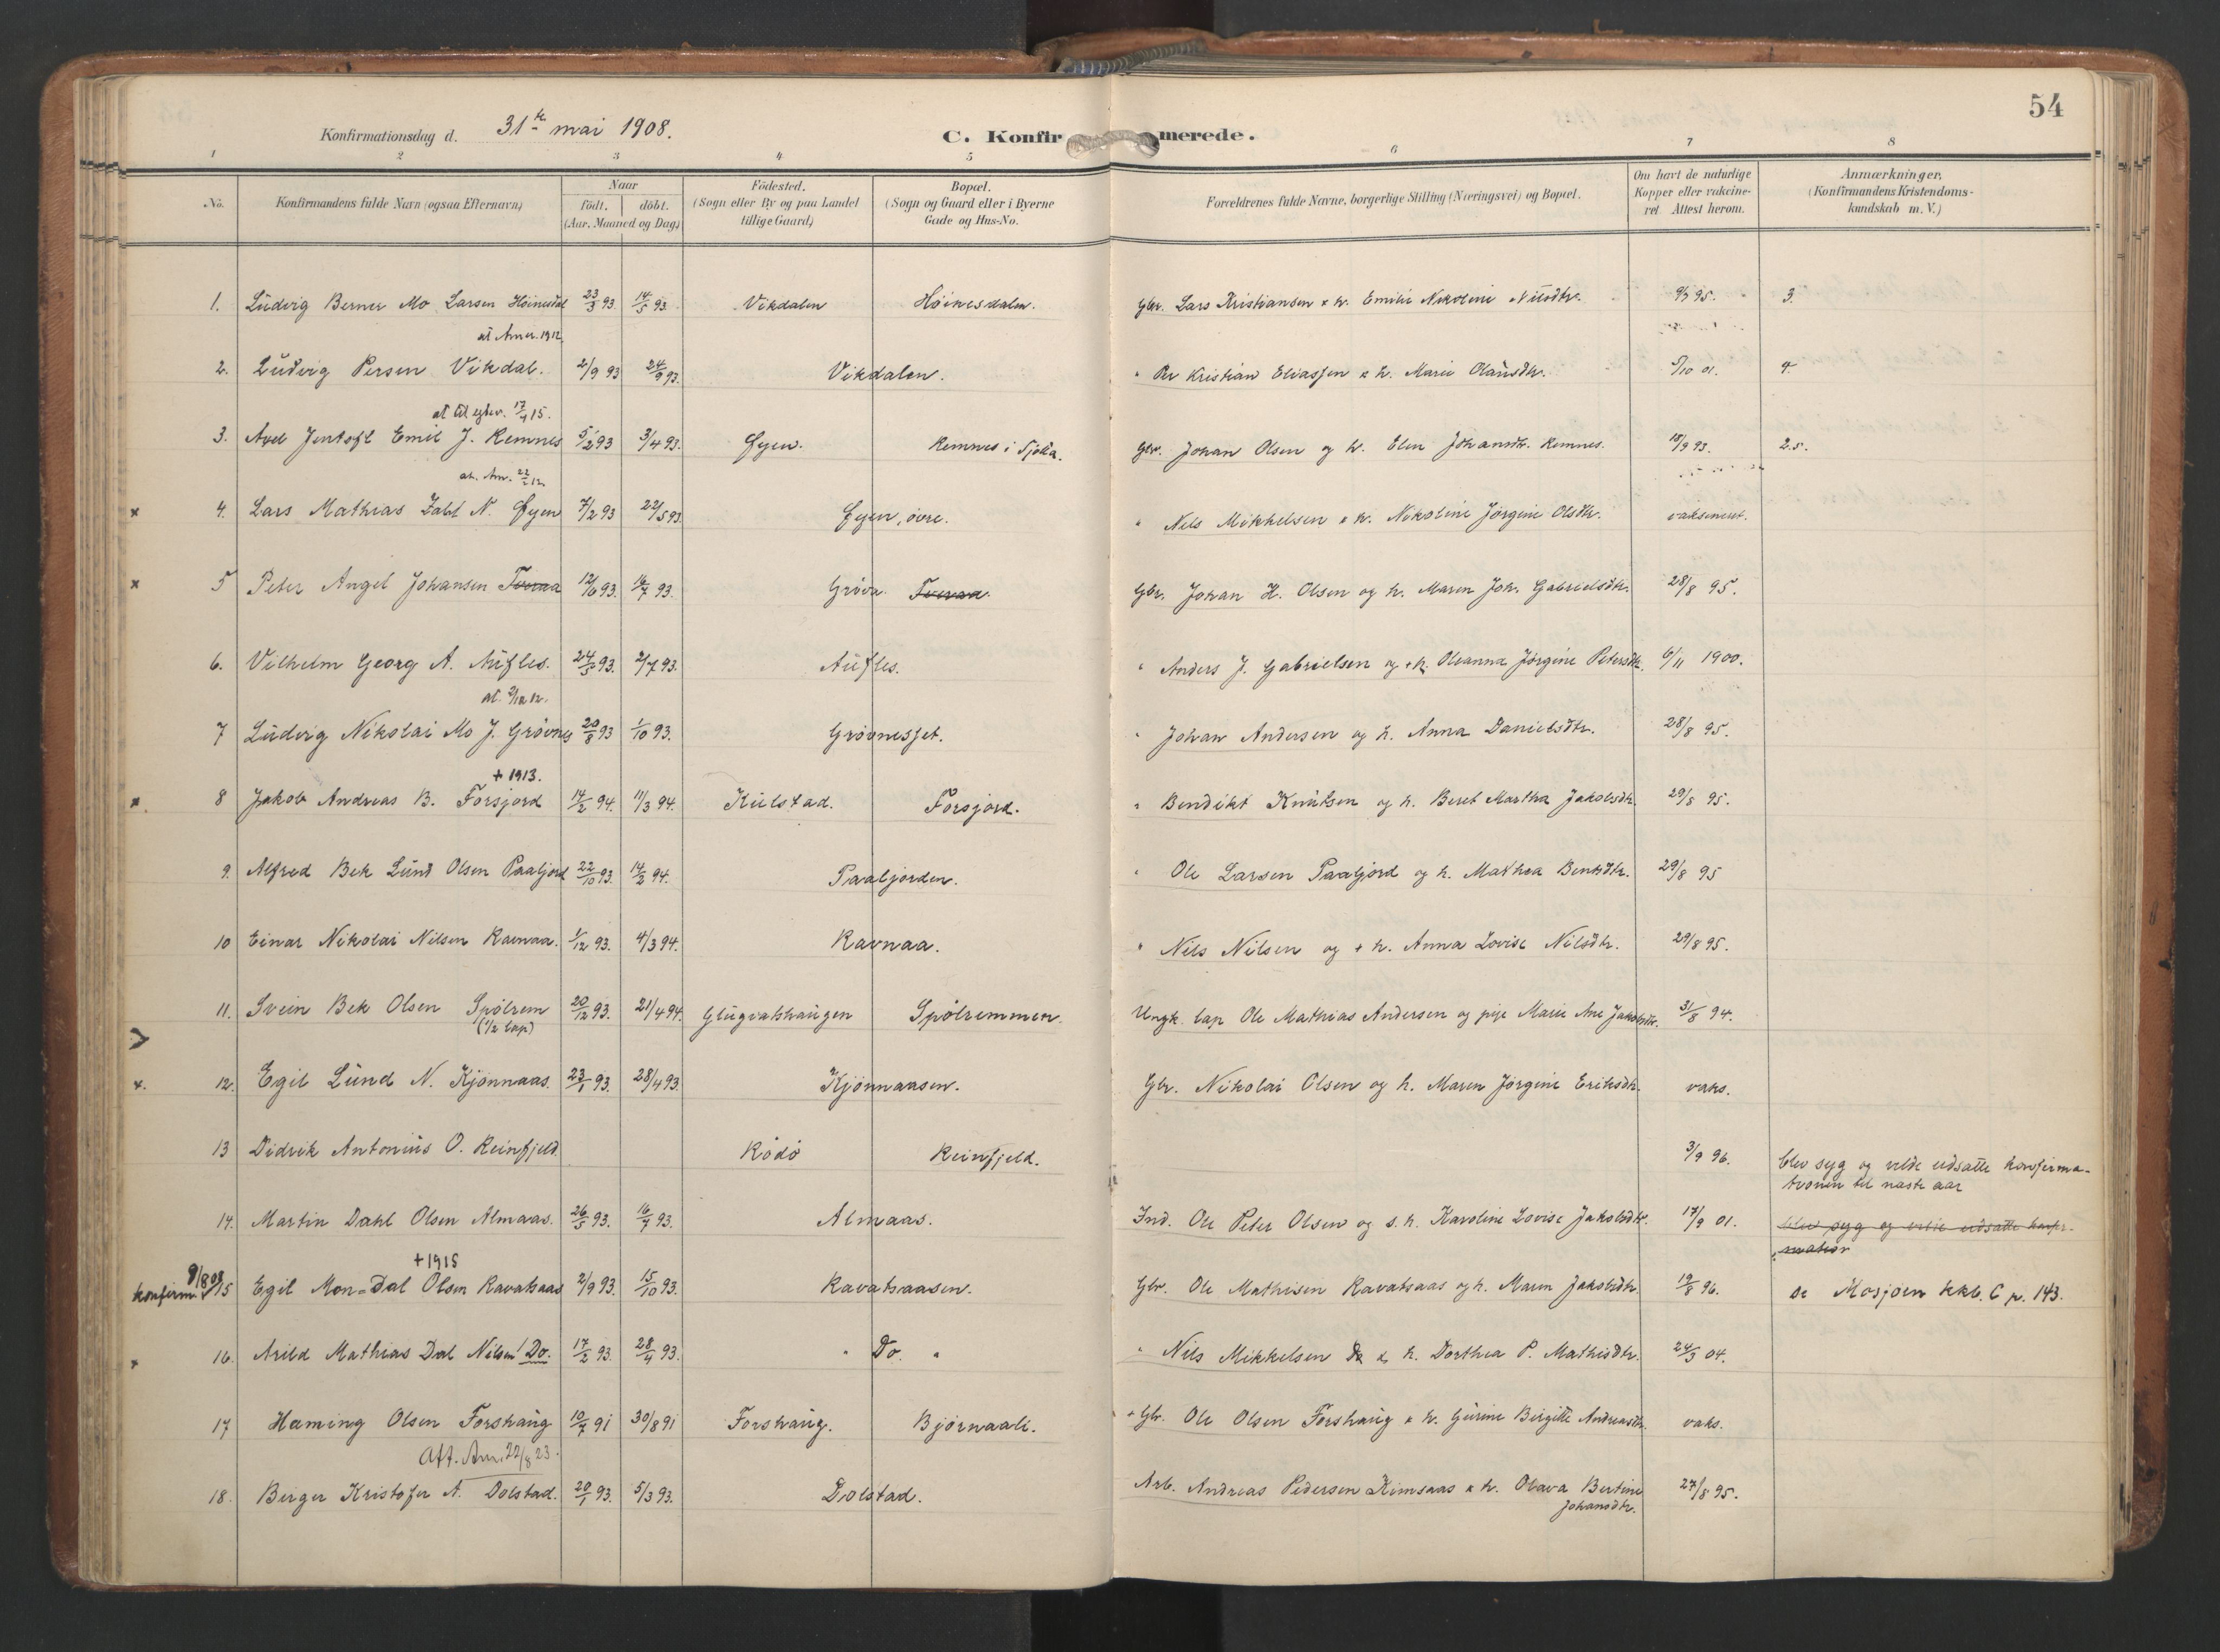 54
Konfirmationsdag d. 31te mai 1908. C. Konfirmerede.
1 2 3 4 5 6 7 8
No. Konfirmandens fulde Navn (ogsaa Efternavn) Naar födt. döbt. (Aar, Maaned og Dag) Födested. (Sogn eller By og paa Landet tillige Gaard) Bopæl. (Sogn og Gaard eller i Byerne Gade og Hus-No. Forældrenes fulde Navne, borgerlige Stilling (Næringsvei) og Bopæl. Om havt de naturlige Kopper eller vakcineret Attest herom. Anmærkninger, (Konfirmandens Kristendomskundskab m. V.)
1. Ludvig Berner Mo Larsen Höinesdal 23/3 93 14/5 93. Vikdalen Höinesdalen. Gbr. Lars Kristiansen & h. Emilie Nikoline Nilsdtr. 9/9 95. 3.
at Amer. 1912
2. Ludvig Persen Vikdal. 2/9 93 24/9 93. Vikdalen. " Per Kristian Eliassen & h. Marie Olausdtr. 5/10 01. 4.
at til 17/4 15.
3. Axel Jentoft Emil J. Remnes 5/2 93 3/4 93. Øyen. Remnes i Tjötta. Gbr. Johan Olsen og h. Elen Johansdtr. Remnes. 18/9 93. 2.5.
at. Am.
x 4. Lars Mathias Zahl N. Øyen 7/2 93 22/5 93. Øyen, övre. " Nils Mikkelsen & h. Nikoline Jörgine Olsdtr. vaksineret.
x 5 Peter Angel Johansen Tveraa 12/6 93. 16/7 93. Gröva. Tveraa. Gbr. Johan H. Olsen og h. Maren Joh. Gabrielsdtr. 28/8 95.
6. Vilhelm Georg A. Aufles. 24/5 93. 2/7 93. Aufles. " Anders J. Gabrielsen og + h. Oleanna Jörgine Petersdtr. 6/11 1900.
7 Ludvig Nikolai Mo J. Grövnes 20/8 93 1/10 93. Grövnesset. " Johan Andersen og h. Anna Danielsdtr. 28/8 95.
+ 1913.
x 8 Jakob Andreas B. Forsjord 14/2 94. 11/3 94. Kulstad. Forsjord. " Bendikt Knutsen og h. Beret Martha Jakobsdtr. 29/8 95.
9. Alfred Bek Lund Olsen Paaljord 22/10 93. 14/2 94. Paaljorden. " Ole Larsen Paaljord og h. Mathea Bentsdtr. 29/8 95
10 Einar Nikolai Nilsen Ravnaa. 1/12 93. 4/3 94. Ravnaa. " Nils Nilsen og + h. Anna Lovise Nilsdtr. 29/8 95.
11. Svein Bek Olsen Spölrem 20/12 93. 21/4 94. Glugvatshaugen Spölremmen. Ungk. lap Ole Mathias Andersen og pige Marie Ane Jakobsdtr. 31/8 94.
(1/2 lap)
x. 12. Egil Lund N. Kjönnaas. 23/1 93. 28/4 93. Kjönnaasen. Gbr. Nikolai Olsen og h. Maren Jörgine Eriksdtr. vaks.
13 Didrik Antonius O. Reinfjeld. Rödö Reinfjeld. 3/9 96. blev syg og vilde udsætte konfirma-
tionen til næste aar
14. Martin Dahl Olsen Almaas. 26/5 93. 16/7 93. Almaas. Ind. Ole Peter Olsen og s. h. Karoline Lovise Jakobsdtr. 17/9 01. blev syg og vilde udsætte konfir-
mation
+ 1915
konfirm 9/8 08 15 Egil Mon=Dal Olsen Ravatsaas 2/9 93. 15/10 93. Ravatsaasen. Gbr. Ole Mathisen Ravatsaas og h. Maren Jakobsdtr. 19/8 96. se Mosjöen kkb. C p. 143.
x 16. Arild Mathias Dal Nilsen Do. 17/2 93. 28/4 93. " Do. " " Nils Mikkelsen Do & h. Dorthea P. Mathisdtr. 24/3 04.
17 Haming Olsen Forshaug 10/7 91 30/8 91 Forshaug. Bjørnaali. + Gbr. Ole Olsen Forshaug & h. Gurine Birgitte Andreasdtr. vaks.
Att. Am. 22/8 23.
18. Birger Kristofer A. Dolstad. 20/1 93. 5/3 93. Dolstad. Arb. Andreas Pedersen Kimsaas & h. Olava Bertine 27/8 95.
Johansdtr.